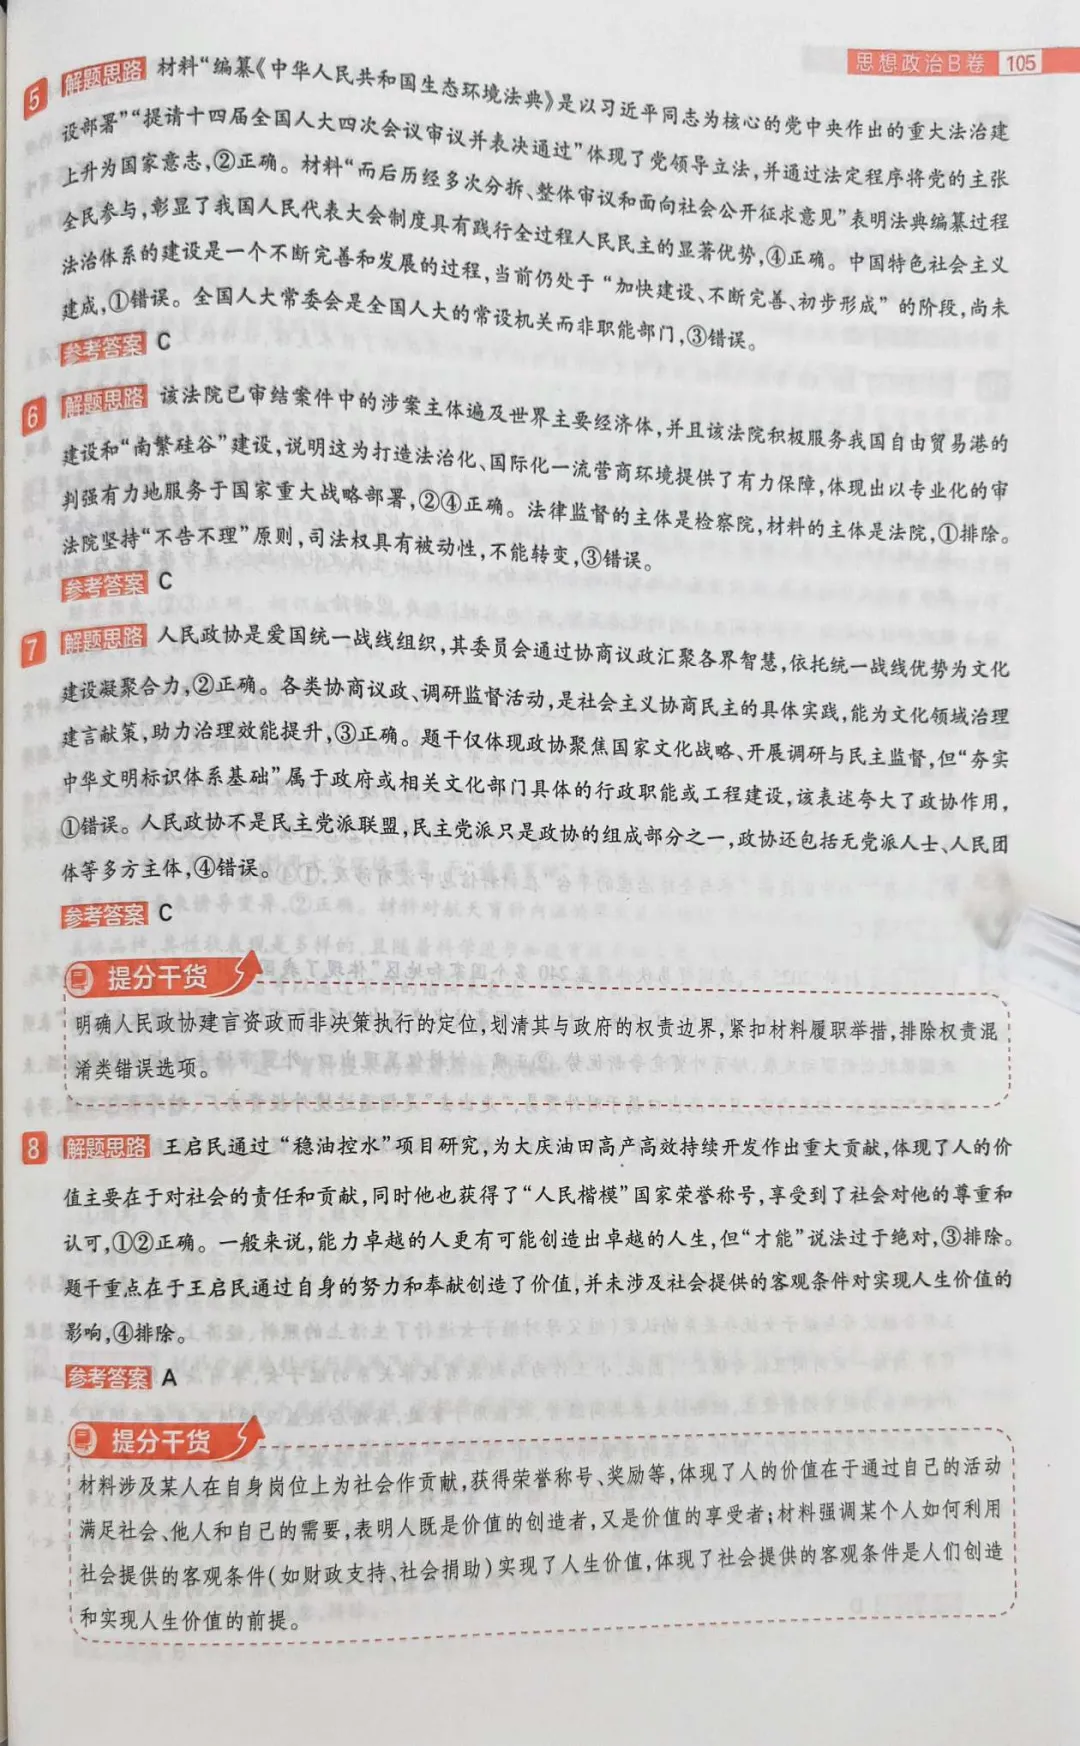 思想政治B卷 105
5 解题思路 材料“编纂《中华人民共和国生态环境法典》是以习近平同志为核心的党中央作出的重大法治建
设部署”“提请十四届全国人大四次会议审议并表决通过”体现了党领导立法,并通过法定程序将党的主张
上升为国家意志,②正确。材料“而后历经多次分拆、整体审议和面向社会公开征求意见”表明法典编纂过程
全民参与,彰显了我国人民代表大会制度具有践行全过程人民民主的显著优势,④正确。中国特色社会主义
法治体系的建设是一个不断完善和发展的过程,当前仍处于“加快建设、不断完善、初步形成”的阶段,尚未
建成,①错误。全国人大常委会是全国人大的常设机关而非职能部门,③错误。
参考答案 C
6 解题思路 该法院已审结案件中的涉案主体遍及世界主要经济体,并且该法院积极服务我国自由贸易港的
建设和“南繁硅谷”建设,说明这为打造法治化、国际化一流营商环境提供了有力保障,体现出以专业化的审
判强有力地服务于国家重大战略部署,②④正确。法律监督的主体是检察院,材料的主体是法院,①排除。
法院坚持“不告不理”原则,司法权具有被动性,不能转变,③错误。
参考答案 C
7 解题思路 人民政协是爱国统一战线组织,其委员会通过协商议政汇聚各界智慧,依托统一战线优势为文化
建设凝聚合力,②正确。各类协商议政、调研监督活动,是社会主义协商民主的具体实践,能为文化领域治理
建言献策,助力治理效能提升,③正确。题干仅体现政协聚焦国家文化战略、开展调研与民主监督,但“夯实
中华文明标识体系基础”属于政府或相关文化部门具体的行政职能或工程建设,该表述夸大了政协作用,
①错误。人民政协不是民主党派联盟,民主党派只是政协的组成部分之一,政协还包括无党派人士、人民团
体等多方主体,④错误。
参考答案 C
提分干货
明确人民政协建言资政而非决策执行的定位,划清其与政府的权责边界,紧扣材料履职举措,排除权责混
淆类错误选项。
8 解题思路 王启民通过“稳油控水”项目研究,为大庆油田高产高效持续开发作出重大贡献,体现了人的价
值主要在于对社会的责任和贡献,同时他也获得了“人民楷模”国家荣誉称号,享受到了社会对他的尊重和
认可,①②正确。一般来说,能力卓越的人更有可能创造出卓越的人生,但“才能”说法过于绝对,③排除。
题干重点在于王启民通过自身的努力和奉献创造了价值,并未涉及社会提供的客观条件对实现人生价值的
影响,④排除。
参考答案 A
提分干货
材料涉及某人在自身岗位上为社会作贡献,获得荣誉称号、奖励等,体现了人的价值在于通过自己的活动
满足社会、他人和自己的需要,表明人既是价值的创造者,又是价值的享受者;材料强调某个人如何利用
社会提供的客观条件(如财政支持、社会捐助)实现了人生价值,体现了社会提供的客观条件是人们创造
和实现人生价值的前提。